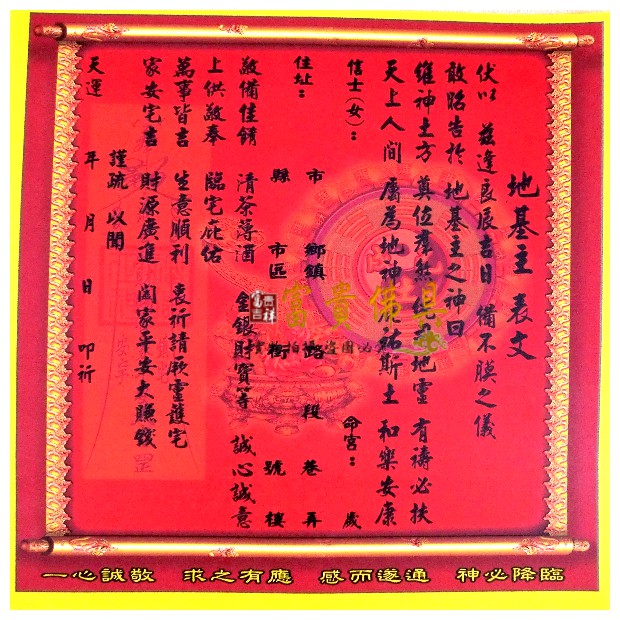 地基主 表文
伏以 茲逢良辰吉日 備不腆之儀
敢昭告於 地基主之神曰
維神土方 奠位羣煞 地靈 有禱必扶
天上人間 屬為地神 祐斯土 和樂安康
信士(女): 命宮: 歲
住址: 市 鄉鎮 路 段 巷 弄
縣 市區 街 號 樓
敬備佳餚 清茶薄酒 金銀財寶等 誠心誠意
上供敬奉 臨宅庇佑
萬事皆吉 生意順利 衷祈請厥靈護宅
家安宅吉 財源廣進 闔家平安大賺錢
謹疏 以聞
天運 年 月 日 叩祈
富貴佛具
富貴吉祥
一心誠敬 求之有應 感而遂通 神必降臨